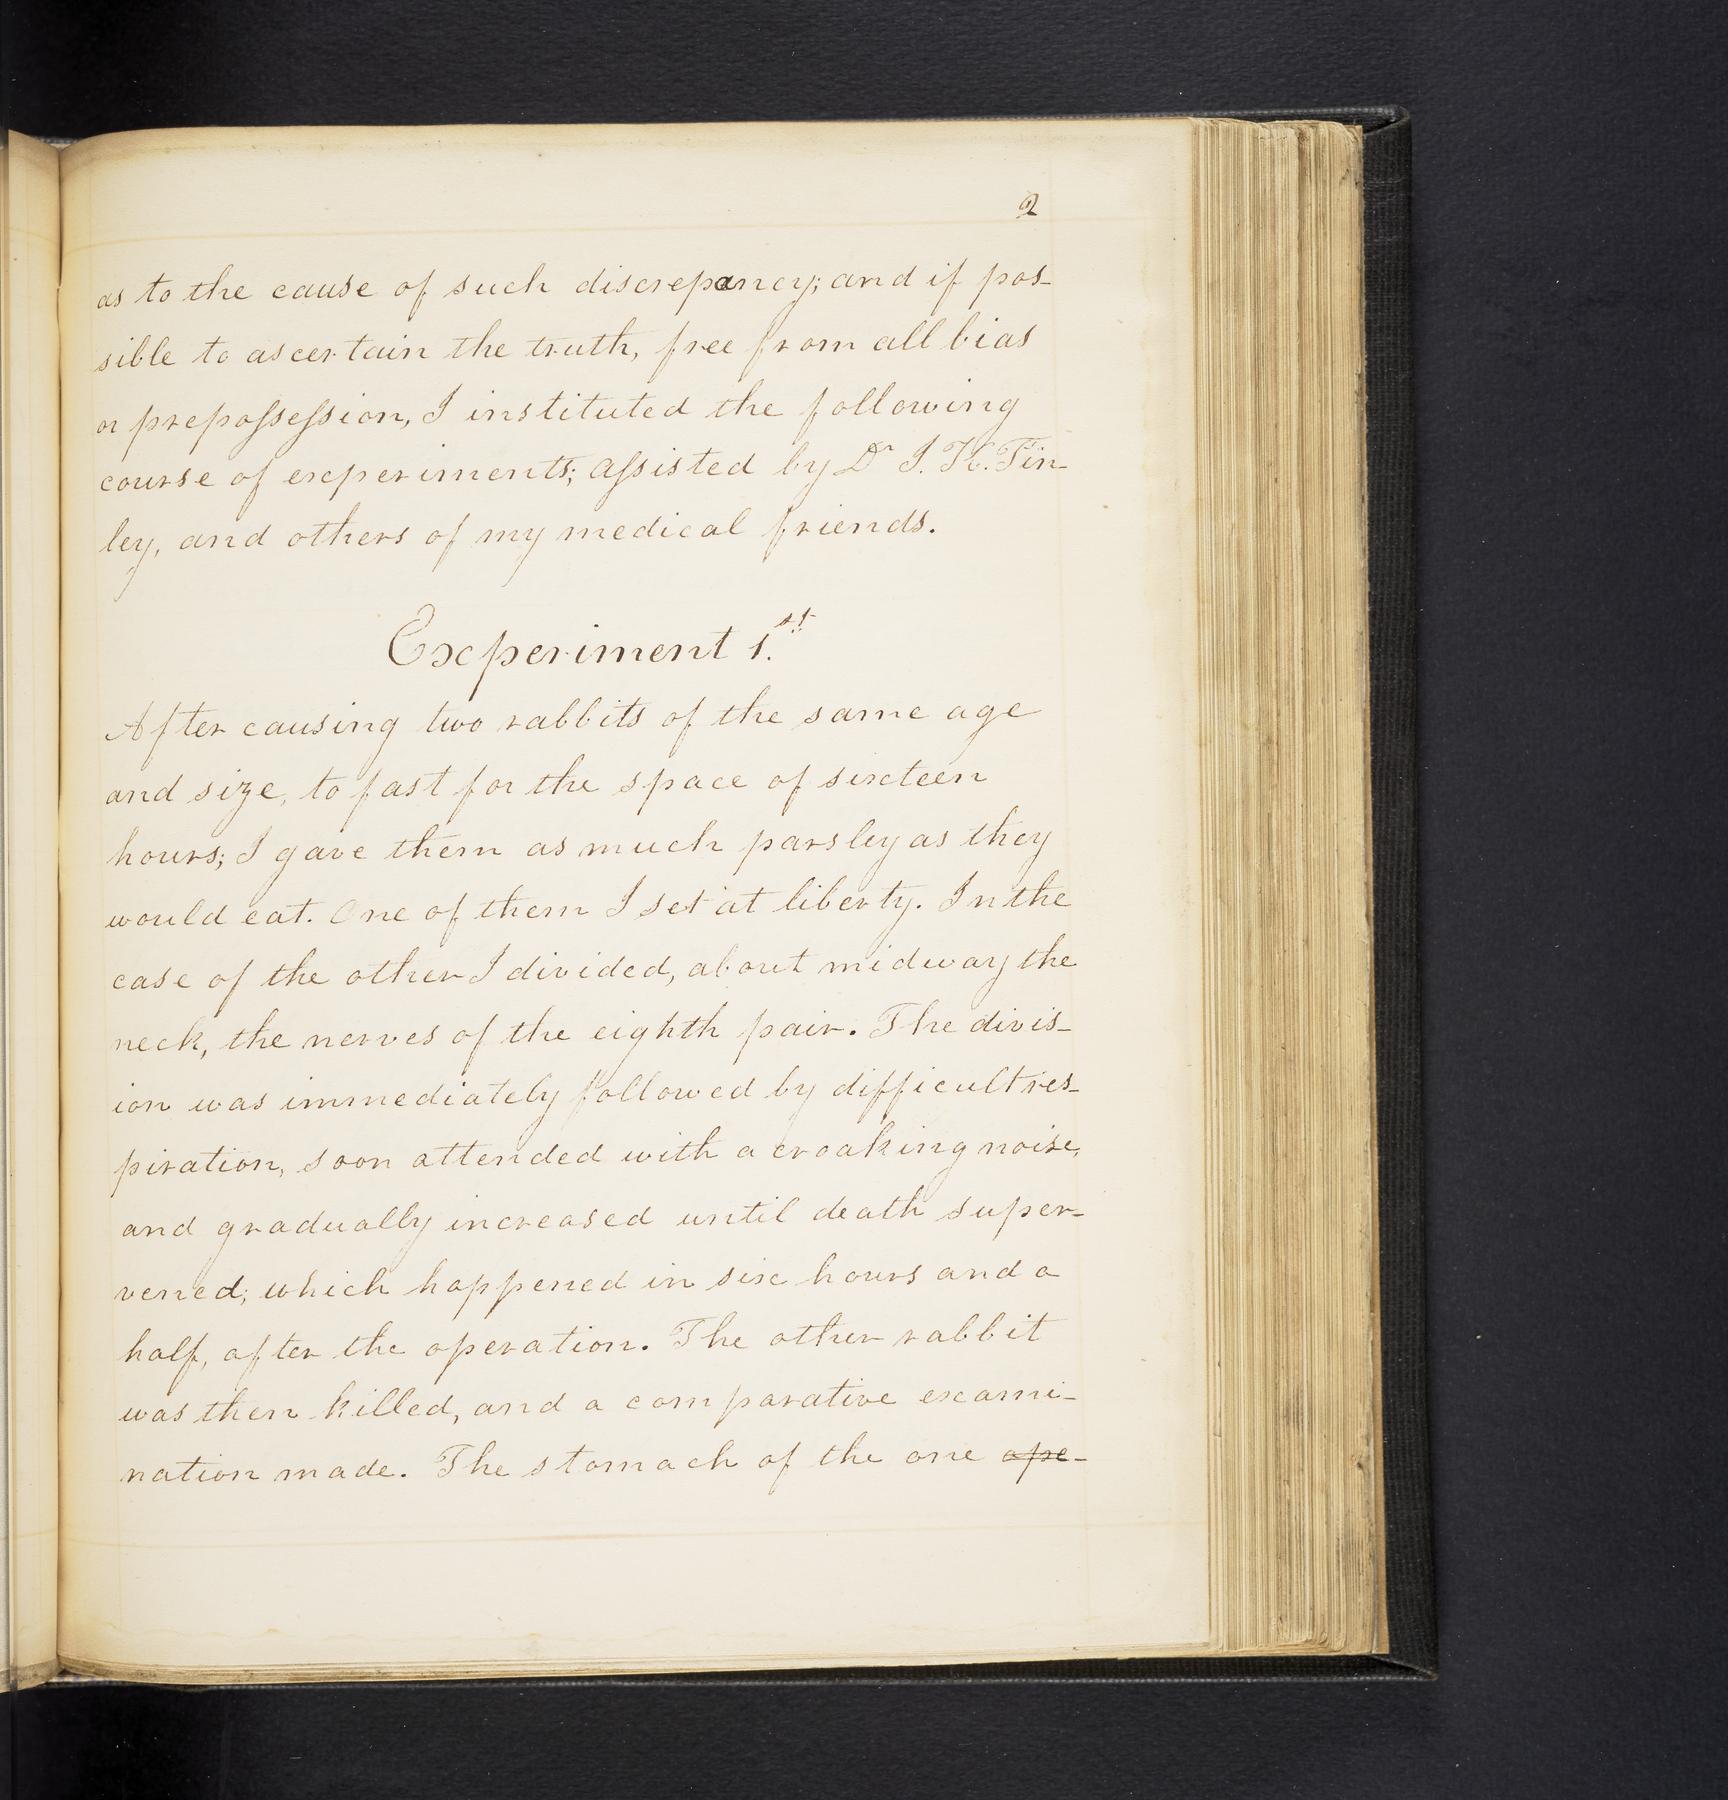 2
as to the cause of such discrepancy; and if pos-
sible to ascertain the truth, free from all bias
or prepoſseſsion, I instituted the following
course of experiments; aſsisted by Dr I. K. Fin-
ley, and others of my medical friends.
Experiment 1.st
After causing two rabbits of the same age
and size, to fast for the space of sixteen
hours; I gave them as much parsley as they
would eat. One of them I set at liberty. In the
case of the other I divided, about midway the
neck, the nerves of the eighth pair. The divis-
ion was immediately followed by difficult res-
piration, soon attended with a croaking noise,
and gradually increased until death super-
vened; which happened in six hours and a
half, after the operation. The other rabbit
was then killed, and a comparative exami-
nation made. The stomach of the one ope-